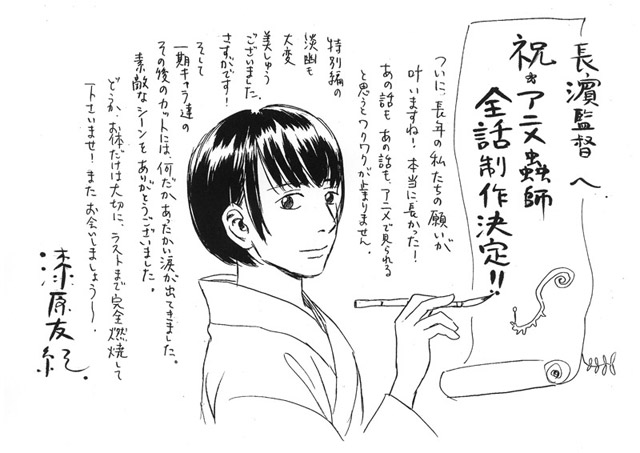 長濵監督へ
祝★アニメ蟲師
全話制作決定!!
ついに、長年の私たちの願いが
叶いますね!本当に長かった!
あの話も あの話も、アニメで見られる
と思うとワクワクが止まりません。
特別編の
淡幽も
大変
美しゅう
ございました。
さすがです!
そして
一期キャラ達の
その後のカットには、何だかあったかい涙が出てきました。
素敵なシーンを ありがとうございました。
どうか、お体だけは大切に、ラストまで完全燃焼して
下さいませ!また お会いしましょう〜。
漆原友紀.